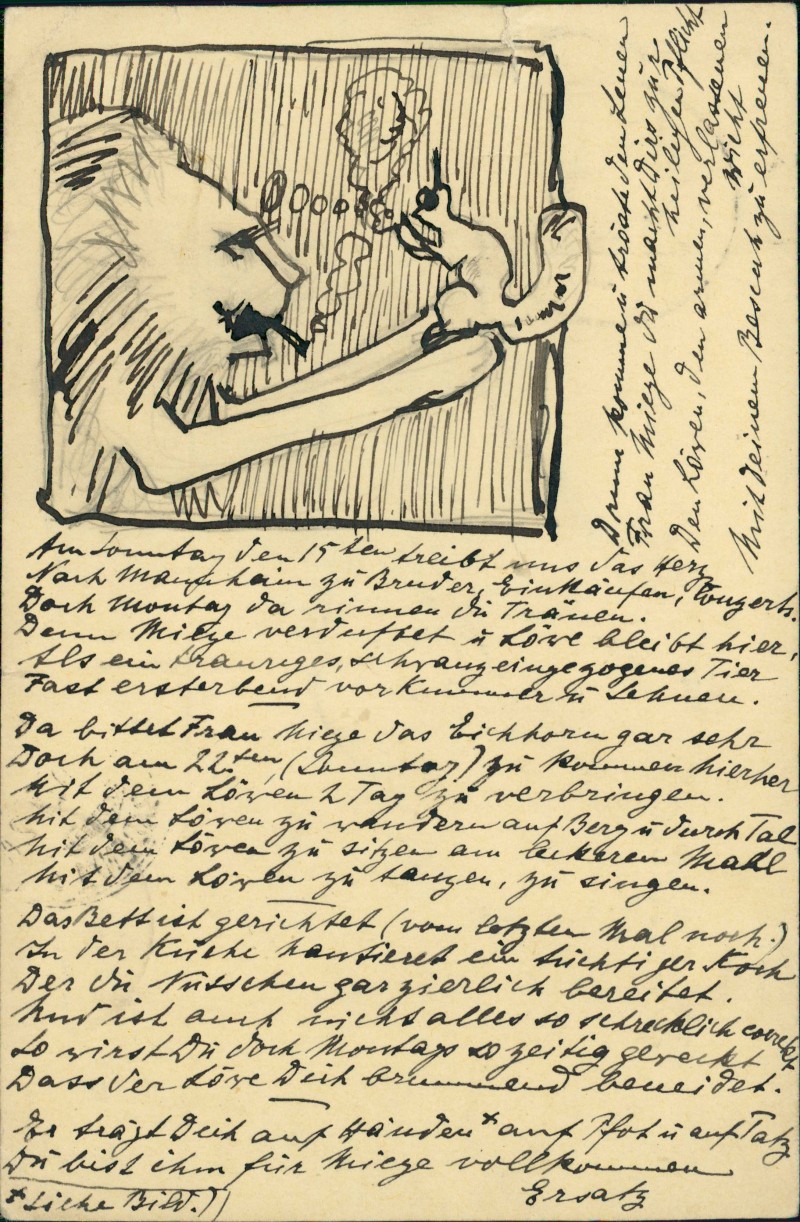 Am Sonntag den 15ten treibt uns das Herz
Nach Mannheim zu Bruder, Einkäufen, Conzerts.
Doch Montag da rinnen die Tränen.
Denn Mieze verduftet u Löwe bleibt hier,
Als ein trauriges, schwanzeingezogenes Tier
Fast ersterbend vor Kummer u Sehnen.
Da bittet Frau Mieze das Eichhorn gar sehr
Doch am 22ten, (Sonntag) zu kommen hierher
Mit dem Löwen 2 Tag zu verbringen.
Mit dem Löwen zu wandern auf Berg u durch Tal
Mit dem Löwen zu sitzen am leckeren Mahl
Mit dem Löwen zu tanzen, zu singen.
Das Bett ist gerichtet (vom letzten Mal noch.)
In der Küche hantieret ein tüchtiger Koch
Der die Nüsschen gar zierlich bereitet.
Und ist auch nicht alles so schrecklich correkt
So wirst Du doch Montags so zeitig geweckt
Dass der Löwe Dich brummend beneidet.
Er trägt Dich auf Händen* auf Pfot u auf Tatz
Du bist ihm für Mieze vollkommen
Ersatz
* Siehe Bild.)
Drum komme u tröste den Leuen
Frau Mieze die macht Dirs zur
heiligen Pflicht
Den Löwen, den armen, verlassenen
Wicht
Mit Deinem Besuch zu erfreuen.